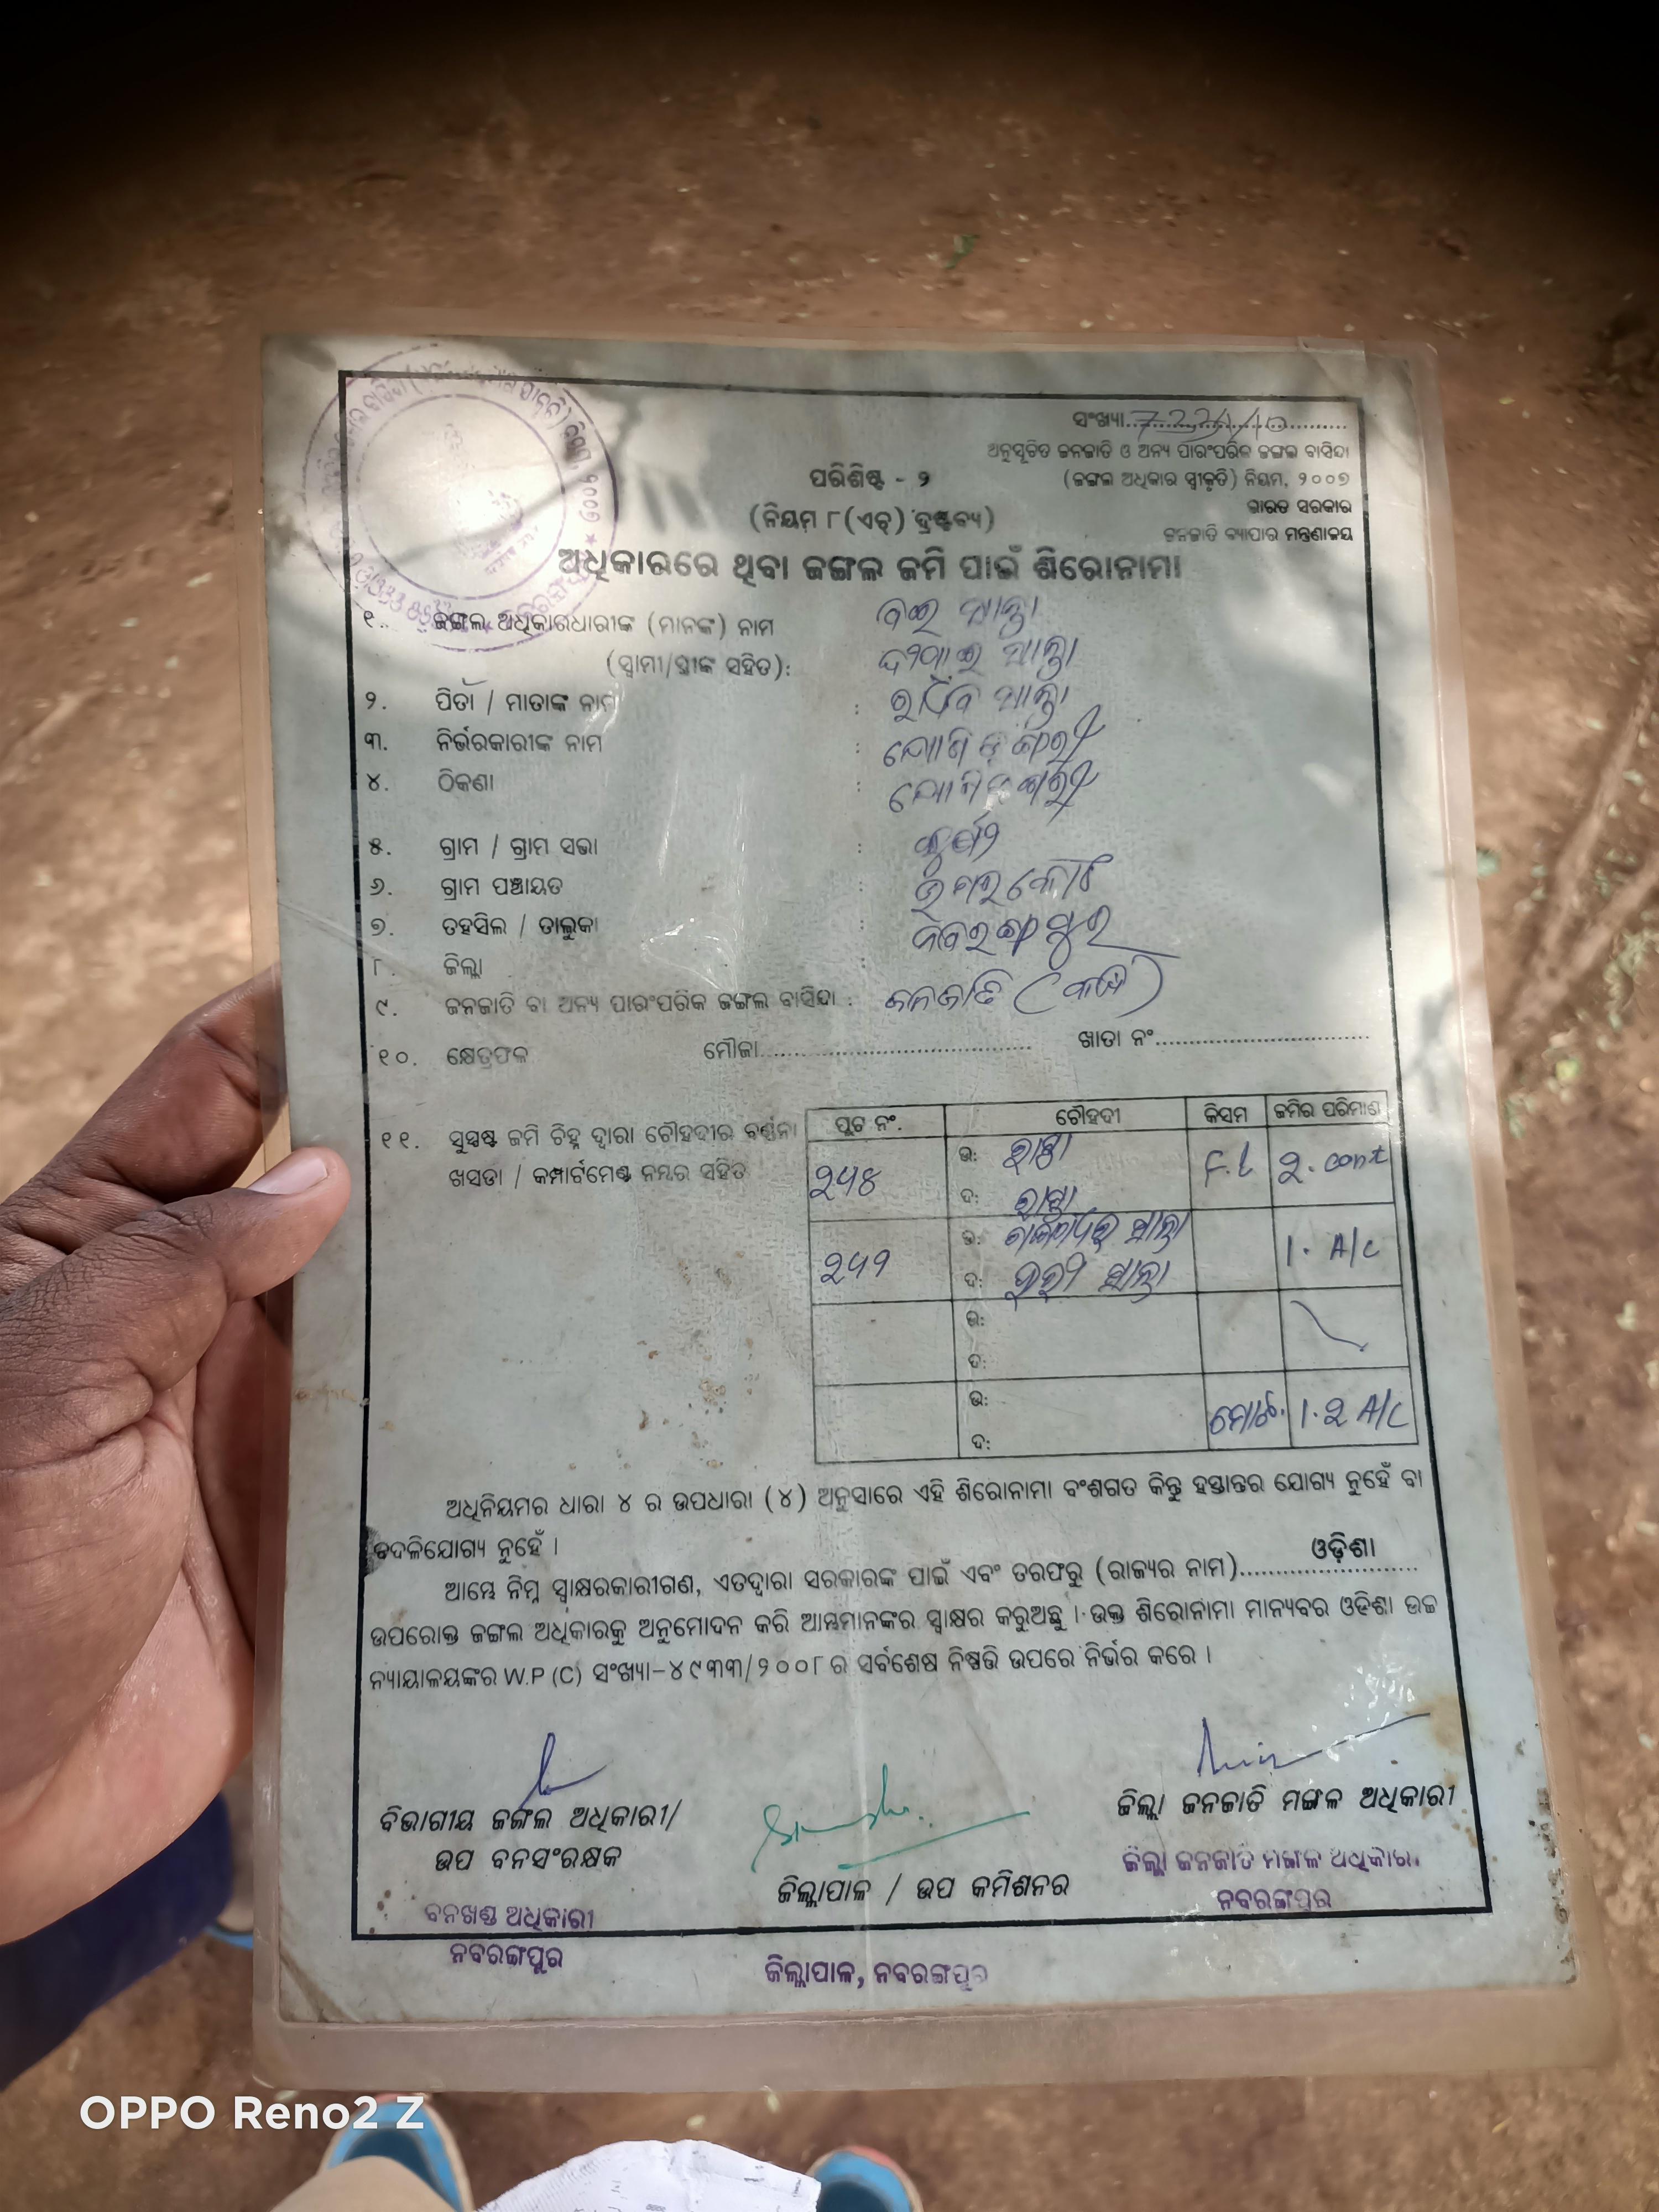 ସଂଖ୍ୟା
ଅନୁସୂଚିତ ଜନଜାତି ଓ ଅନ୍ୟ ପାରଂପରିକ ଜଙ୍ଗଲ ବାସିନ୍ଦା
(ଜଙ୍ଗଲ ଅଧିକାର ସ୍ୱୀକୃତି) ନିୟମ, ୨୦୦୭
ଭାରତ ସରକାର
ଜନଜାତି ବ୍ୟାପାର ମନ୍ତ୍ରଣାଳୟ
ପରିଶିଷ୍ଟ - ୨
(ନିୟମ ୮(ଏଚ୍) ଦ୍ରଷ୍ଟବ୍ୟ)
ଅଧିକାରରେ ଥିବା ଜଙ୍ଗଲ ଜମି ପାଇଁ ଶିରୋନାମା
୧. ଜଙ୍ଗଲ ଅଧିକାରଧାରୀଙ୍କ (ମାନଙ୍କ) ନାମ
(ସ୍ୱାମୀ/ସ୍ତ୍ରୀଙ୍କ ସହିତ):
୨. ପିତା / ମାତାଙ୍କ ନାମ :
୩. ନିର୍ଭରକାରୀଙ୍କ ନାମ :
୪. ଠିକଣା :
୫. ଗ୍ରାମ / ଗ୍ରାମ ସଭା :
୬. ଗ୍ରାମ ପଞ୍ଚାୟତ : ଉମରକୋଟ
୭. ତହସିଲ / ତାଲୁକା : ନବରଙ୍ଗପୁର
୮. ଜିଲ୍ଲା :
୯. ଜନଜାତି ବା ଅନ୍ୟ ପାରଂପରିକ ଜଙ୍ଗଲ ବାସିନ୍ଦା : ଜନଜାତି
୧୦. କ୍ଷେତ୍ରଫଳ ମୌଜା ଖାତା ନଂ
୧୧. ସୁସ୍ପଷ୍ଟ ଜମି ଚିହ୍ନ ଦ୍ୱାରା ଚୌହଦୀର ବର୍ଣ୍ଣନା
ଖସଡା / କମ୍ପାର୍ଟମେଣ୍ଟ ନମ୍ବର ସହିତ
ପ୍ଲଟ ନଂ. ଚୌହଦୀ କିସମ ଜମିର ପରିମାଣ
୨୫୪ ଉ: ରାସ୍ତା F.L ୨. cont
ଦ: ରାସ୍ତା
୨୫୨ ଉ: 1. A/C
ଦ:
ଉ:
ଦ:
ଉ: ମୋଟ. 1.୨ A/C
ଦ:
ଅଧିନିୟମର ଧାରା ୪ ର ଉପଧାରା (୪) ଅନୁସାରେ ଏହି ଶିରୋନାମା ବଂଶଗତ କିନ୍ତୁ ହସ୍ତାନ୍ତର ଯୋଗ୍ୟ ନୁହେଁ ବା
ବଦଳିଯୋଗ୍ୟ ନୁହେଁ ।
ଆମ୍ଭେ ନିମ୍ନ ସ୍ୱାକ୍ଷରକାରୀଗଣ, ଏତଦ୍ୱାରା ସରକାରଙ୍କ ପାଇଁ ଏବଂ ତରଫରୁ (ରାଜ୍ୟର ନାମ) ଓଡ଼ିଶା
ଉପରୋକ୍ତ ଜଙ୍ଗଲ ଅଧିକାରକୁ ଅନୁମୋଦନ କରି ଆମ୍ଭମାନଙ୍କର ସ୍ୱାକ୍ଷର କରୁଅଛୁ । ଉକ୍ତ ଶିରୋନାମା ମାନ୍ୟବର ଓଡିଶା ଉଚ୍ଚ
ନ୍ୟାୟାଳୟଙ୍କର W.P (C) ସଂଖ୍ୟା-୪୯୩୩/୨୦୦୮ ର ସର୍ବଶେଷ ନିଷ୍ପତ୍ତି ଉପରେ ନିର୍ଭର କରେ ।
ବିଭାଗୀୟ ଜଙ୍ଗଲ ଅଧିକାରୀ/
ଉପ ବନସଂରକ୍ଷକ
ବନଖଣ୍ଡ ଅଧିକାରୀ
ନବରଙ୍ଗପୁର
ଜିଲ୍ଲାପାଳ / ଉପ କମିଶନର
ଜିଲ୍ଲାପାଳ, ନବରଙ୍ଗପୁର
ଜିଲ୍ଲା ଜନଜାତି ମଙ୍ଗଳ ଅଧିକାରୀ
ଜିଲ୍ଲା ଜନଜାତି ମଙ୍ଗଳ ଅଧିକାରୀ
ନବରଙ୍ଗପୁର
OPPO Reno2 Z